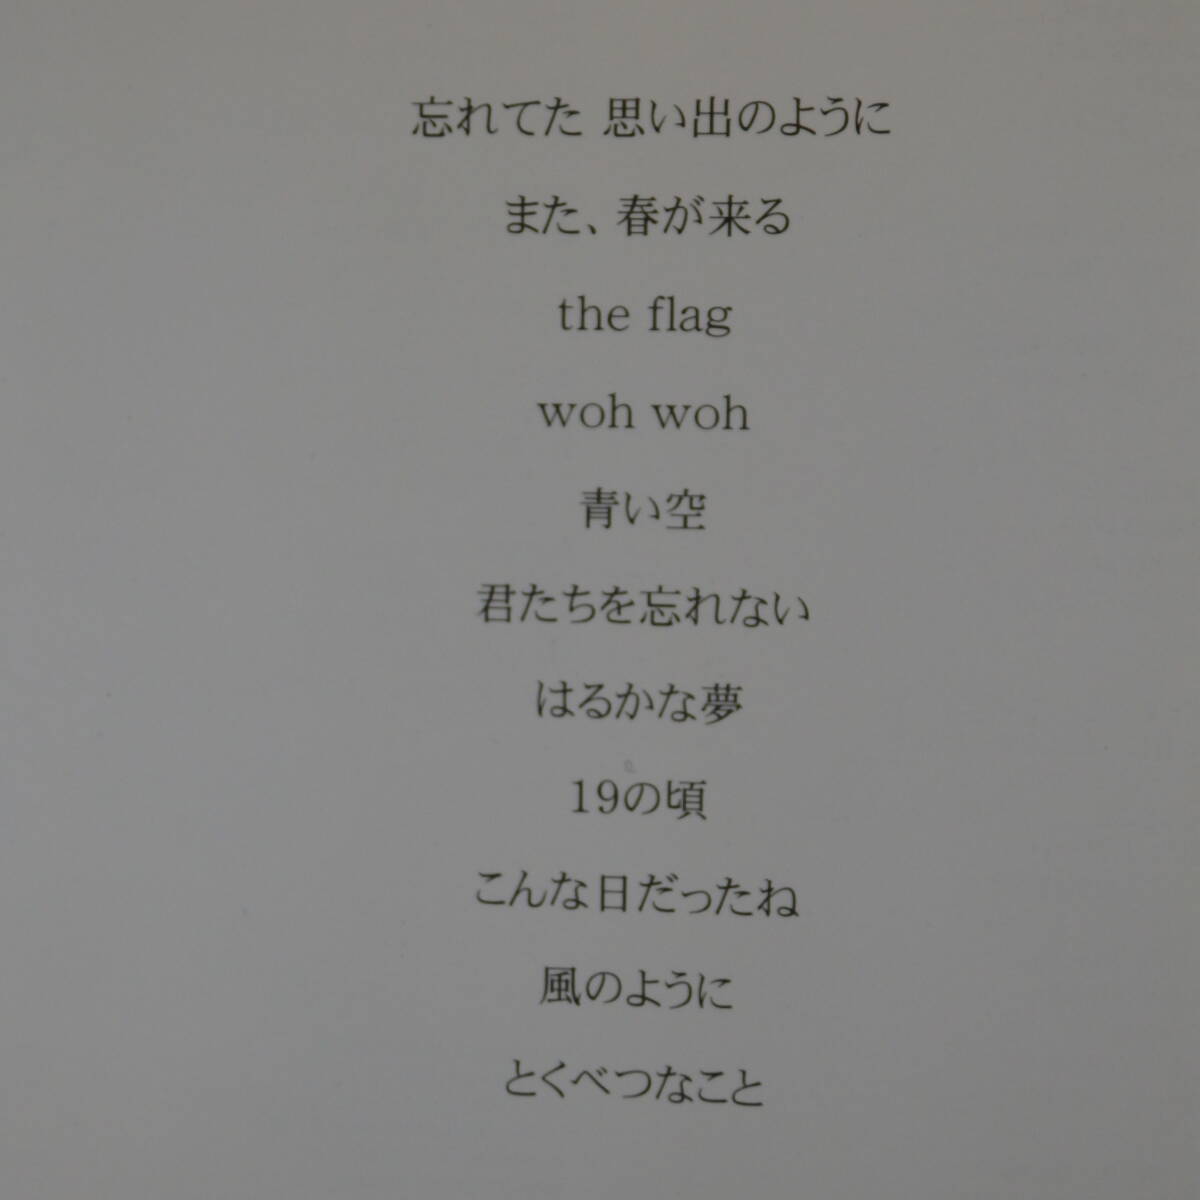 忘れてた 思い出のように
また、春が来る
the flag
woh woh
青い空
君たちを忘れない
はるかな夢
19の頃
こんな日だったね
風のように
とくべつなこと